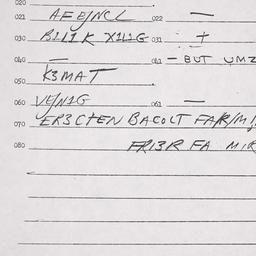 020
021 AFEJNCL 022 —
030 B1L1K X1L1G 031 +
040 — 041 — BUT UMZ
050 K3MAT
060 VEJN1G 061 —
070 ER3CTEN BACOLT
080 FR13R FA MIR